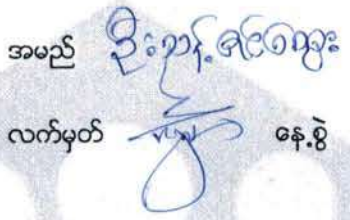 အမည် ဦးဉာန့်ဇင်အေး
လက်မှတ် နေ့စွဲ